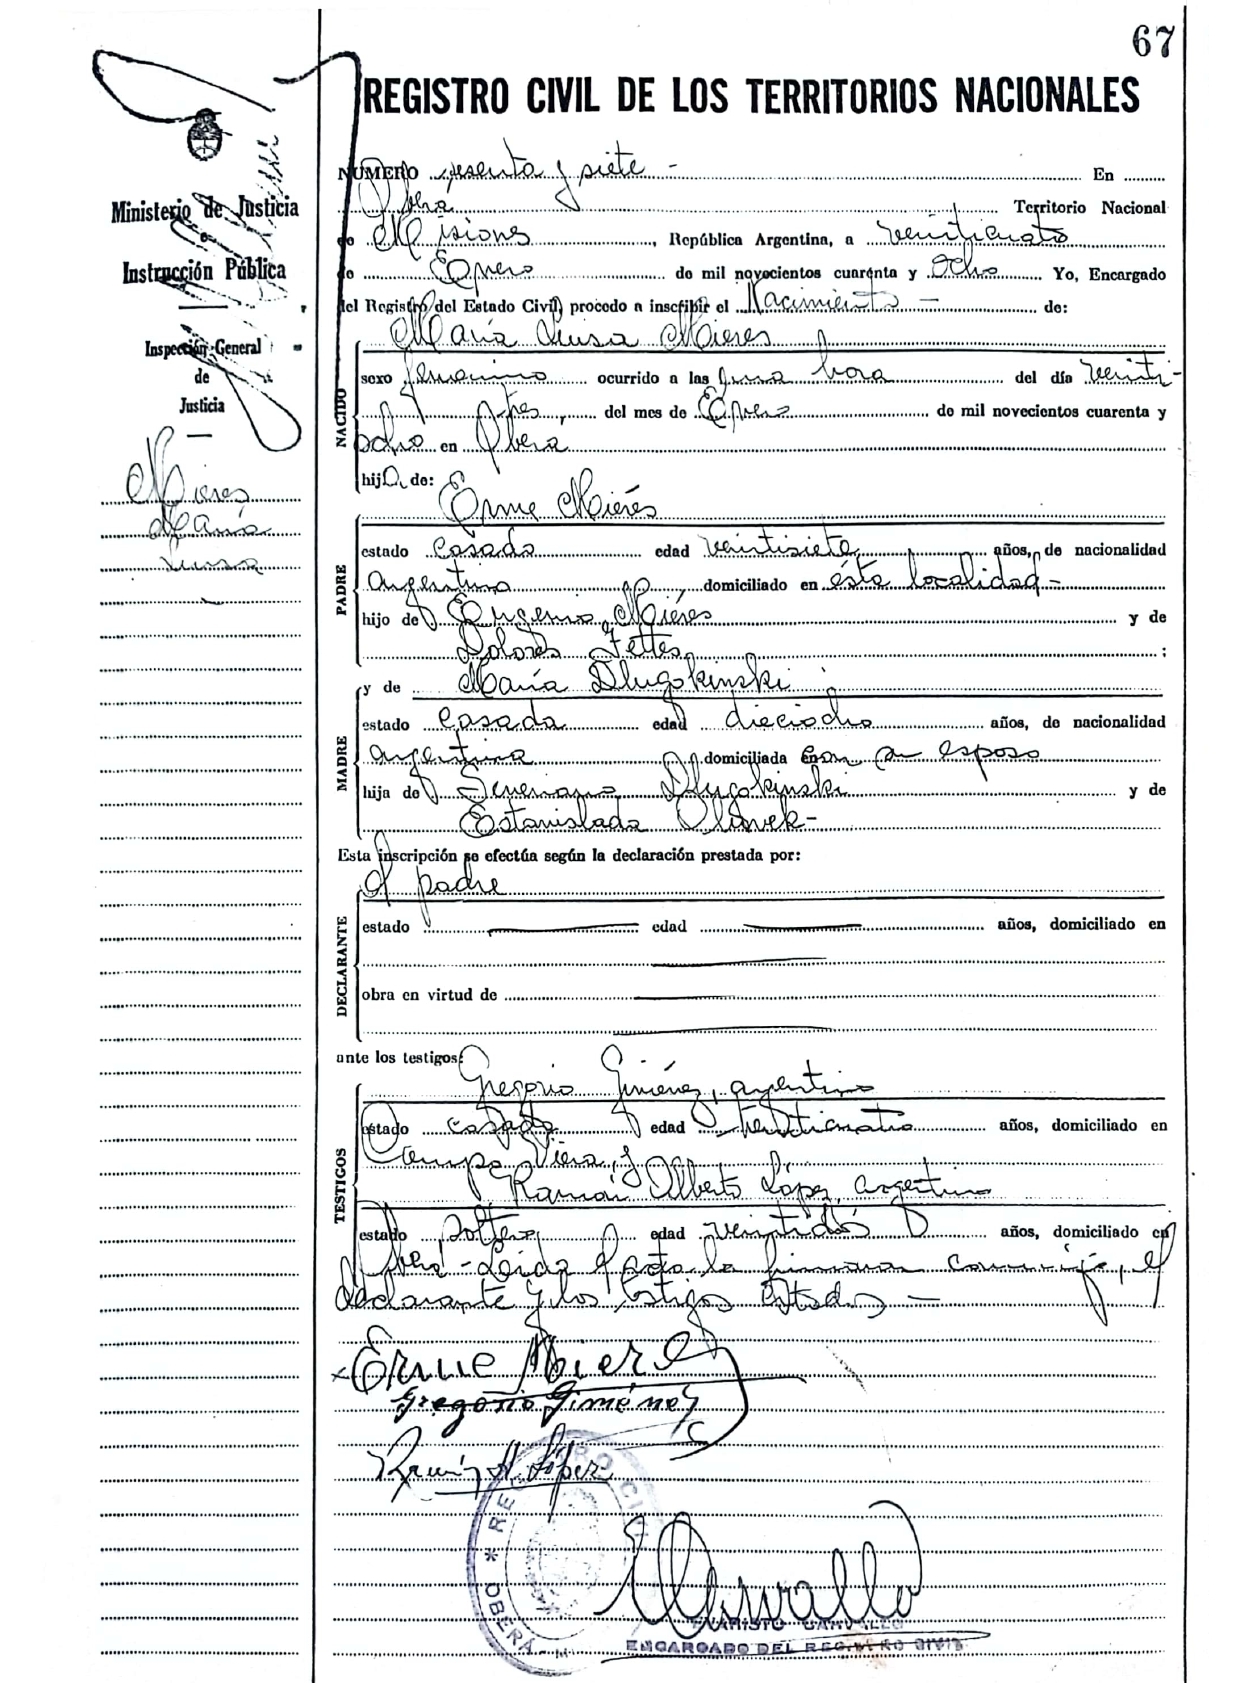 67
REGISTRO CIVIL DE LOS TERRITORIOS NACIONALES
Ministerio de Justicia
e
Instrucción Pública
Inspección General
de
Justicia
Mieres
María
Luisa
NÚMERO sesenta y siete - En
Oberá Territorio Nacional
de Misiones, República Argentina, a veinticuatro
de Enero de mil novecientos cuarenta y ocho Yo, Encargado
del Registro del Estado Civil, procedo a inscribir el Nacimiento - de:
NACIDO
María Luisa Mieres
sexo femenino ocurrido a las una hora del día veinti-
trés, del mes de Enero de mil novecientos cuarenta y
ocho en Oberá
hija de:
PADRE
Erme Mierés
estado casado edad veintisiete años, de nacionalidad
argentino domiciliado en ésta localidad -
hijo de Eugenio Mierés y de
Dolores Fettes ;
MADRE
y de María Dlugokinski
estado casada edad dieciocho años, de nacionalidad
argentina domiciliada con su esposo
hija de Severiano Dlugokinski y de
Estanislada Olivek -
Esta inscripción se efectúa según la declaración prestada por:
DECLARANTE
el padre
estado edad años, domiciliado en
obra en virtud de
ante los testigos:
TESTIGOS
Gregorio Giménez, argentino
estado casado edad años, domiciliado en
Campo Viera, y
Ramón Alberto López, argentino
estado soltero, edad veintidós años, domiciliado en
Oberá - Leída el acta la firmaron conmigo, el
declarante y los testigos citados -
Erme Mieres
Gregorio Giménez
Ramón A. López
REGISTRO CIVIL * OBERÁ - M
ECarvallo
EVARISTO CARVALLO
ENCARGADO DEL REGISTRO CIVIL